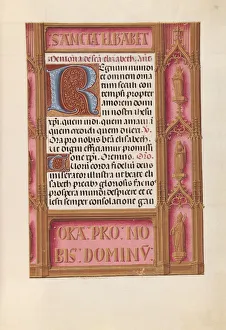 SANCTA ELISABET
Memoria de sca elisabeth. Ant.
Regnum mundi
et omnem orna
tum seculi con
tempsi propter
amorem domi
ni nostri ihesu
xpi. quem vidi. quem amaui. i
quem credidi quem dilexi. V.
Ora pro nobis btā elisabeth.
Ut digni efficiamur promissi
one xpi. Oremus. Oro
corda fidelium
miserator illustra: et beate eli
sabeth precibus gloriosis: fac nos
prospera mundi despicere: et ce
lesti semper consolatione gau
ORA· PRO· NO
BIS· DOMINV̄·